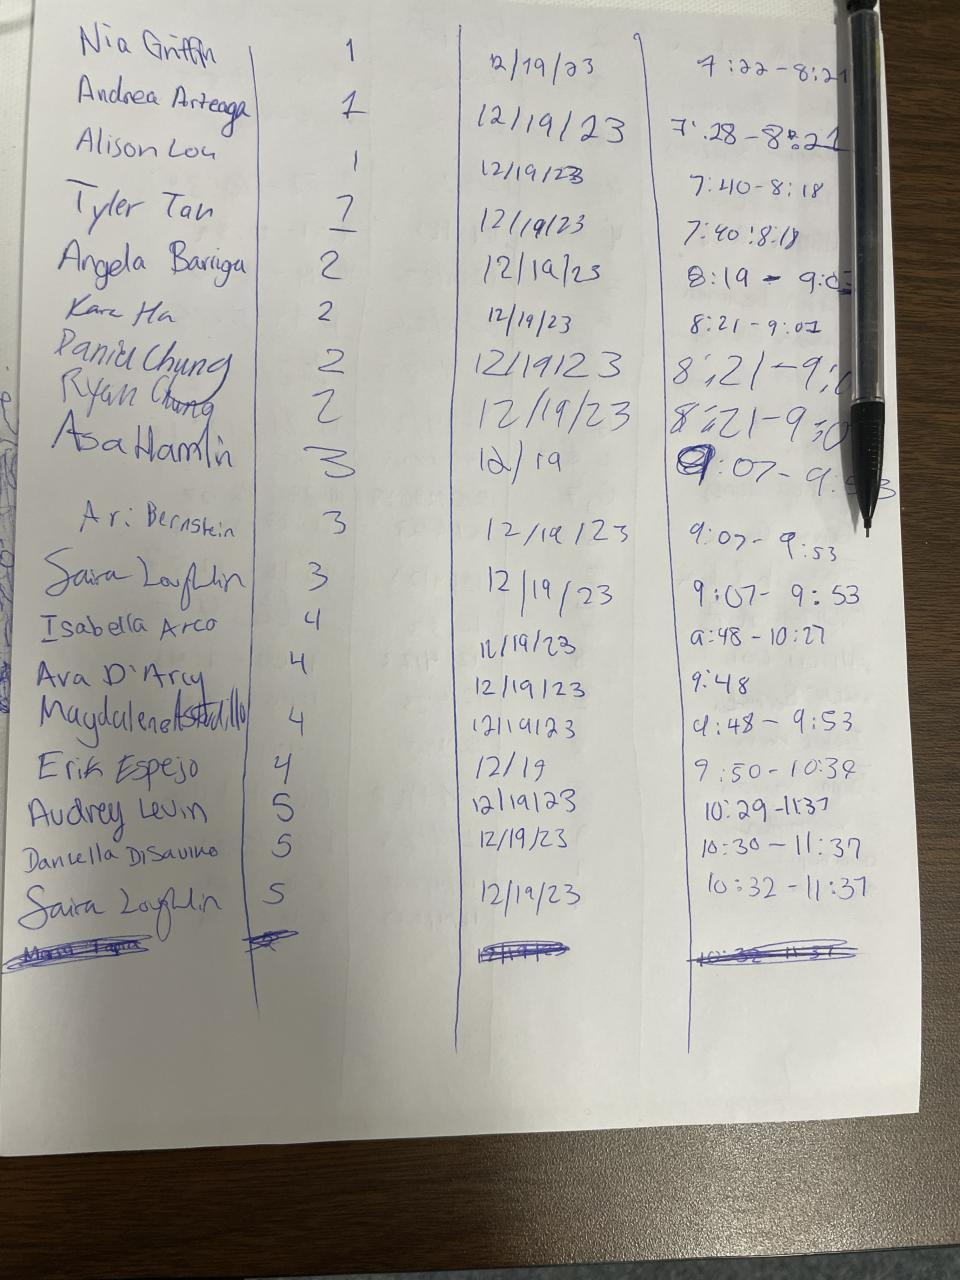 Nia Griffin 1 12/19/23 7:22-8:21
Andrea Arteaga 1 12/19/23 7:28-8:21
Alison Lou 1 12/19/23 7:40-8:18
Tyler Tan 1 12/19/23 7:40-8:18
Angela Barriga 2 12/19/23 8:19 - 9:0
Kara Ha 2 12/19/23 8:21-9:07
Daniel Chung 2 12/19/23 8:21-9:0
Ryan Chung 2 12/19/23 8:21-9:0
Asa Hamlin 3 12/19 9:07-9:53
Ari Bernstein 3 12/19/23 9:07-9:53
Saira Loughlin 3 12/19/23 9:07-9:53
Isabella Arco 4 12/19/23 9:48-10:27
Ava D'Arcy 4 12/19/23 9:48
Magdalena Astudillo 4 12/19/23 9:48-9:53
Erik Espejo 4 12/19 9:50-10:38
Audrey Levin 5 12/19/23 10:29-11:37
Daniella DiSavino 5 12/19/23 10:30-11:37
Saira Loughlin 5 12/19/23 10:32-11:37